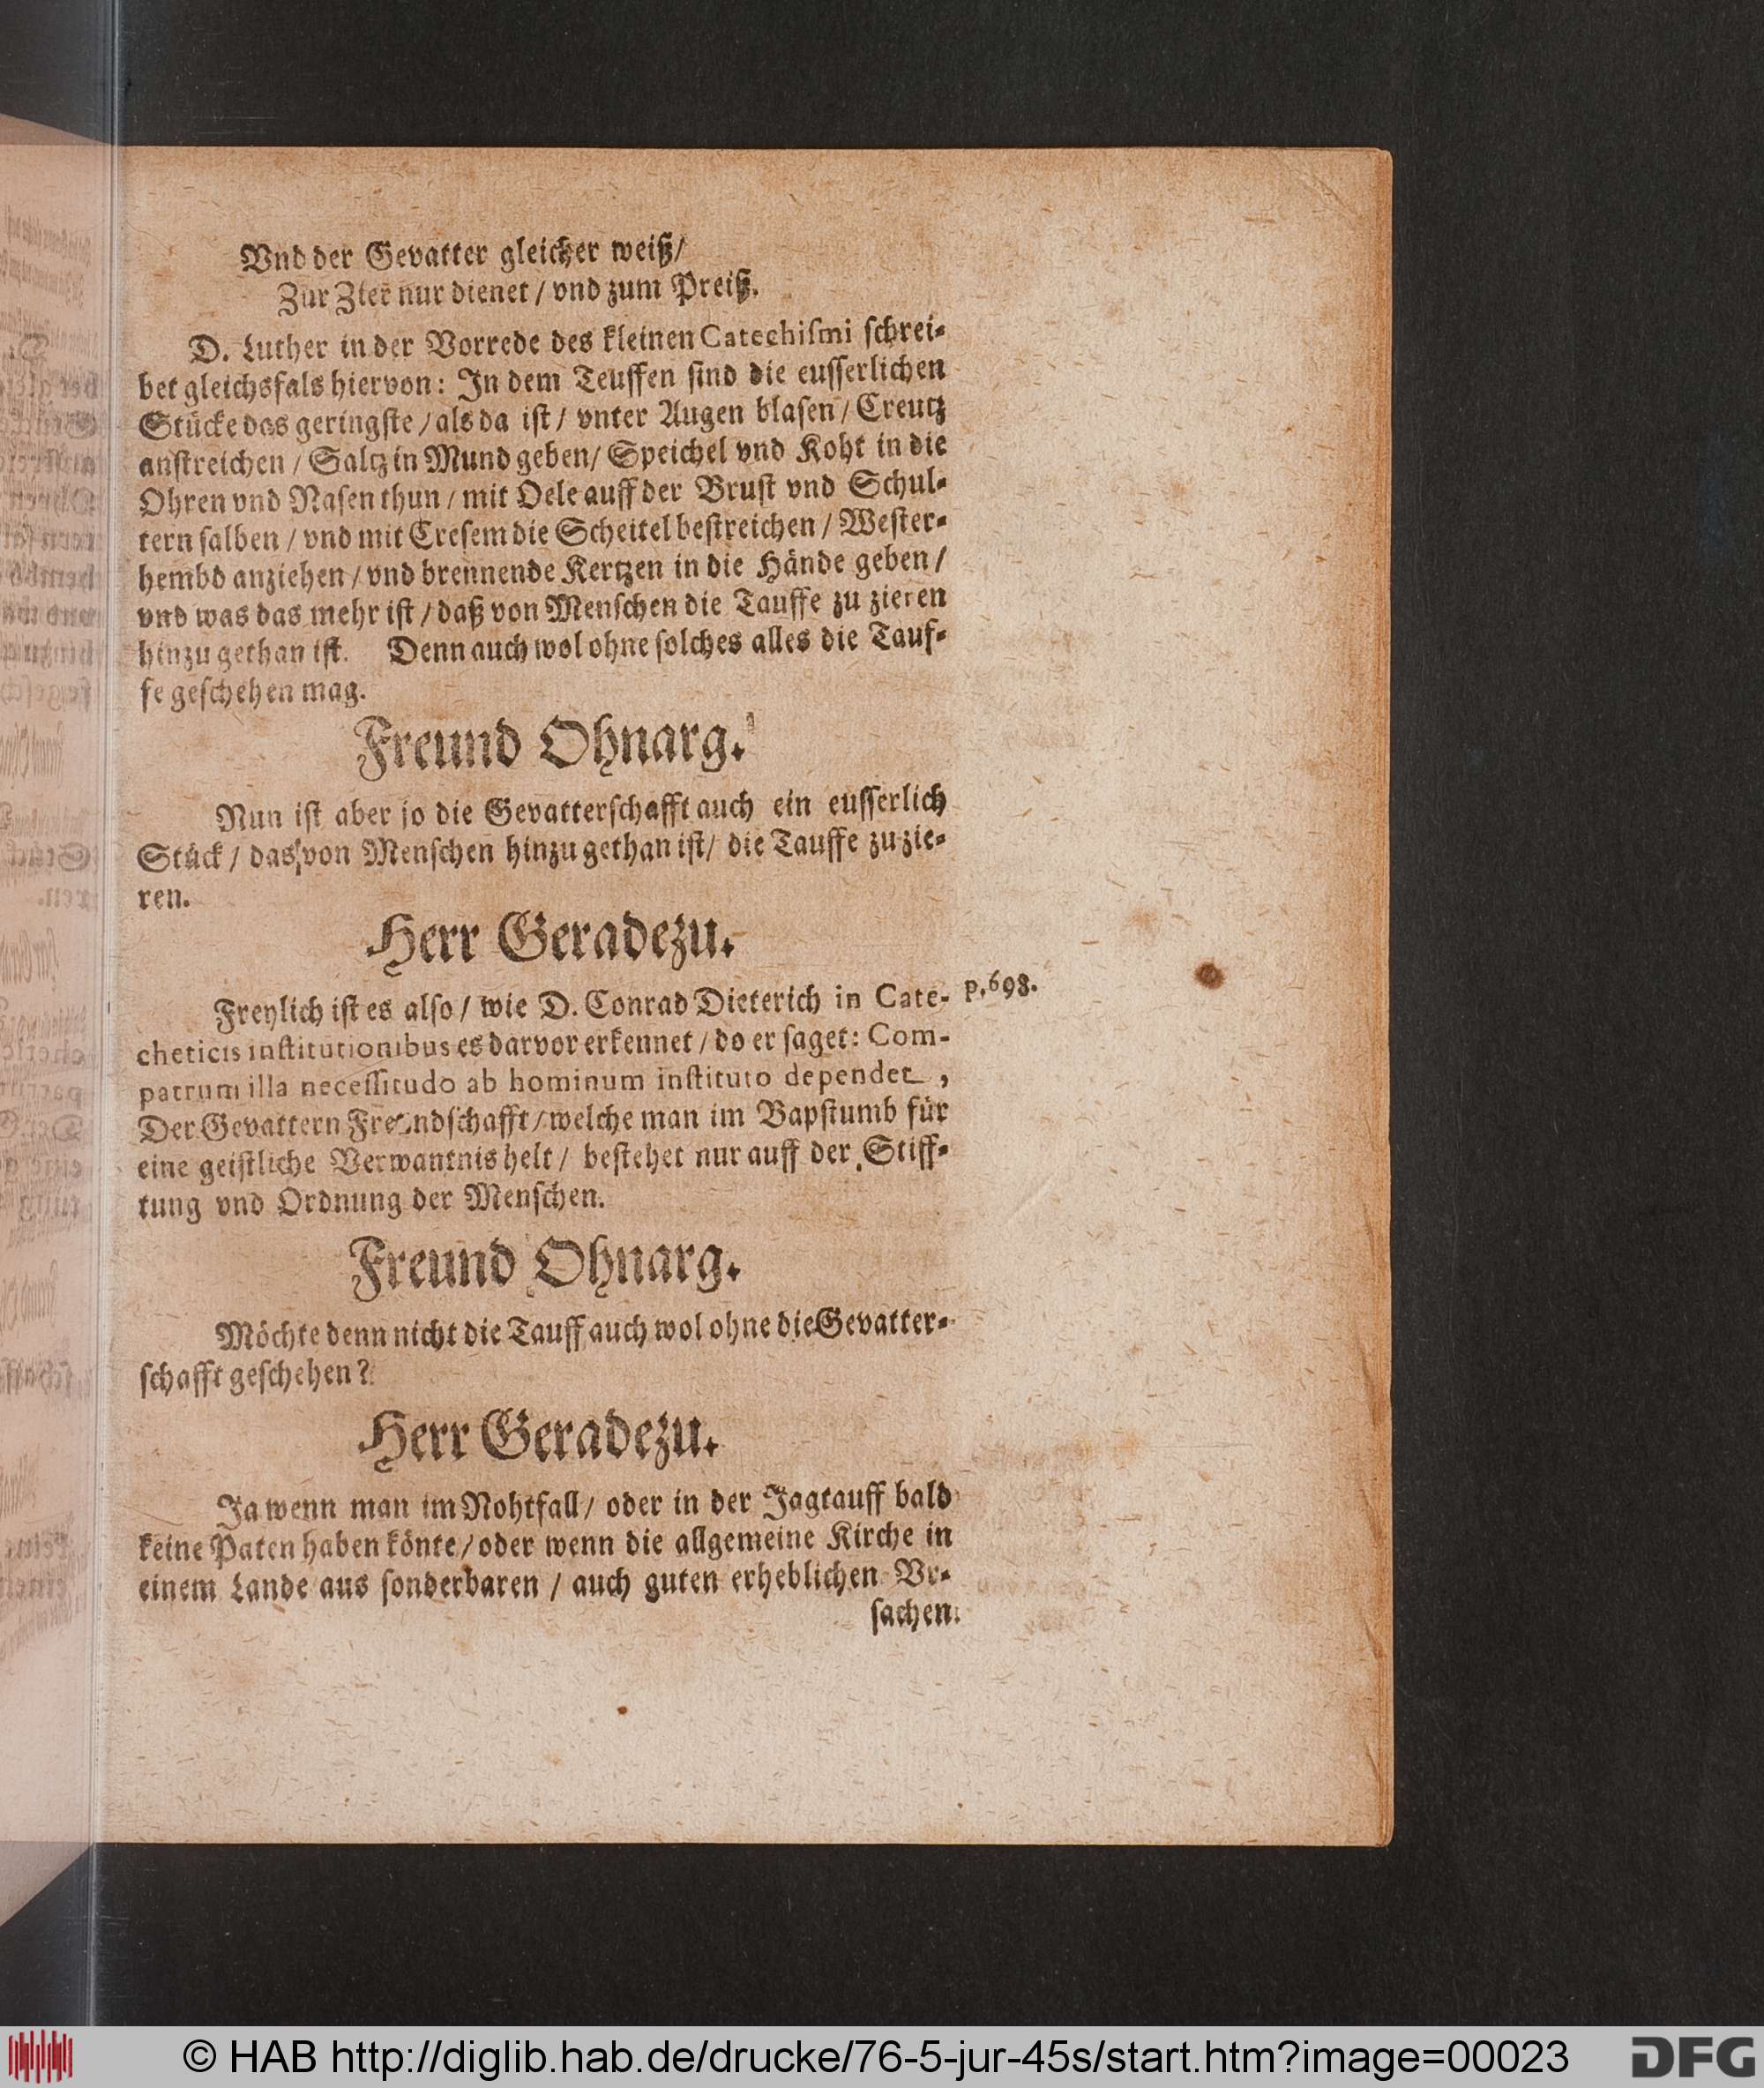 Vnd der Gevatter gleicher weiß/
Zur Zier nur dienet / vnd zum Preiß.
D. Luther in der Vorrede des kleinen Catechiſmi ſchrei-
bet gleichsfals hiervon: In dem Teuffen ſind die euſſerlichen
Stücke das geringſte / als da iſt / vnter Augen blaſen / Creutz
anſtreichen / Saltz in Mund geben/ Speichel vnd Koht in die
Ohren vnd Naſen thun / mit Oele auff der Bruſt vnd Schul-
tern ſalben / vnd mit Creſem die Scheitel beſtreichen / Weſter-
hembd anziehen / vnd brennende Kertzen in die Hände geben /
vnd was das mehr iſt / daß von Menſchen die Tauffe zu zieren
hinzu gethan iſt. Denn auch wol ohne ſolches alles die Tauf-
fe geſchehen mag.
Freund Ohnarg.
Nun iſt aber jo die Gevatterſchafft auch ein euſſerlich
Stück / das von Menſchen hinzu gethan iſt/ die Tauffe zu zie-
ren.
Herr Geradezu.
Freylich iſt es alſo / wie D. Conrad Dieterich in Cate- p. 698.
cheticis inſtitutionibus es darvor erkennet / do er ſaget: Com-
patrum illa neceſſitudo ab hominum inſtituto dependet,
Der Gevattern Freundſchafft / welche man im Bapſtumb für
eine geiſtliche Verwantnis helt / beſtehet nur auff der Stiff-
tung vnd Ordnung der Menſchen.
Freund Ohnarg.
Möchte denn nicht die Tauff auch wol ohne die Gevatter-
ſchafft geſchehen?
Herr Geradezu.
Ja wenn man im Nohtfall / oder in der Jagtauff bald
keine Paten haben könte / oder wenn die allgemeine Kirche in
einem Lande aus ſonderbaren / auch guten erheblichen Vr-
ſachen
© HAB http://diglib.hab.de/drucke/76-5-jur-45s/start.htm?image=00023
DFG